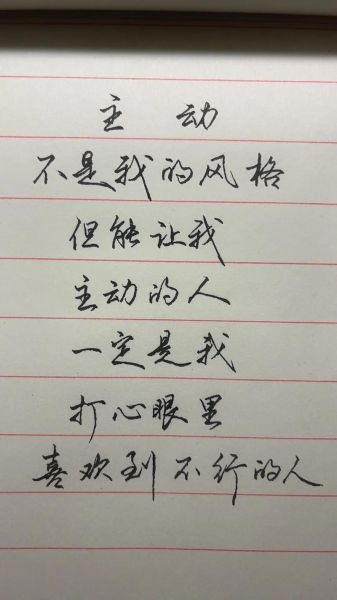 主动
不是我的风格
但能让我
主动的人
一定是我
打心眼里
喜欢到不行的人